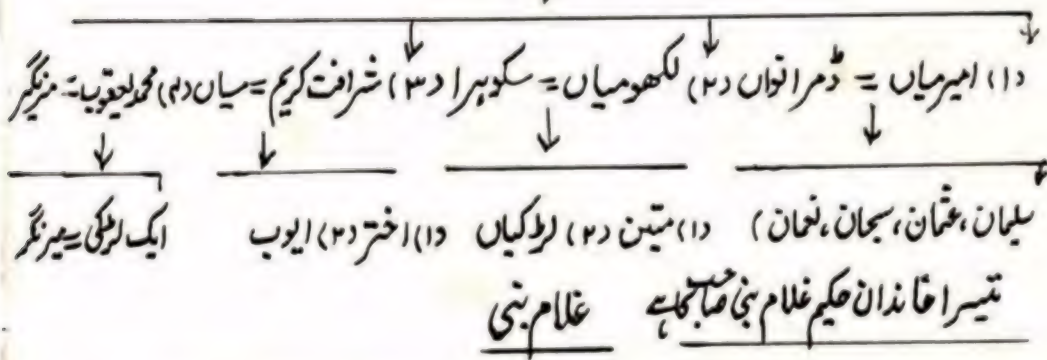 (۱) امیر میاں = ڈمرانواں (۲) لکھو میاں = سکوہرا (۳) شرافت کریم = میاں (۴) محمد یعقوب = میرنگر
سلیمان، عثمان، سبحان، نعمان) (۱) متین (۲) لڑکیاں (۱) اختر (۲) ایوب ایک لڑکی = میرنگر
تیسرا خاندان حکیم غلام نبی صاحب کا ہے غلام نبی